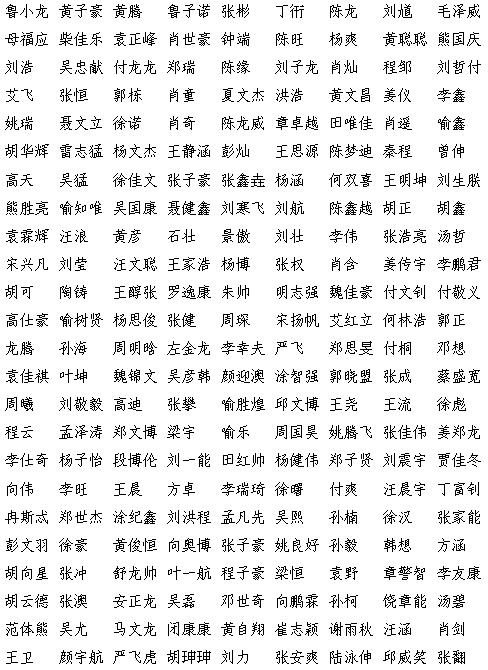 鲁小龙 黄子豪 黄腾 鲁子诺 张彬 丁衎 陈龙 刘馗 毛泽威
母福应 柴佳乐 袁正峰 肖世豪 钟端 陈旺 杨爽 黄聪聪 熊国庆
刘浩 吴忠献 付龙龙 郑瑞 陈缘 刘子龙 肖灿 程邹 刘哲付
艾飞 张恒 郭栋 肖童 夏文杰 洪浩 黄文昌 姜仪 李鑫
姚瑞 聂文立 徐诺 肖奇 陈龙威 章卓越 田唯佳 肖遥 喻鑫
胡华辉 雷志猛 杨文杰 王静涵 彭灿 王思源 陈梦迪 秦程 曾伸
高天 吴猛 徐佳文 张子豪 张鑫垚 杨涵 何双喜 王明坤 刘生朕
熊胜亮 喻知唯 吴国康 聂健鑫 刘寒飞 刘航 陈鑫越 胡正 胡鑫
袁霖辉 汪浪 黄彦 石壮 景傲 刘壮 李伟 张浩亮 汤哲
宋兴凡 刘莹 汪文聪 王家浩 杨博 张权 肖含 姜传宇 李鹏君
胡可 陶铸 王醇张 罗逸康 朱帅 明志强 魏佳豪 付文钊 付敬义
高仕豪 喻树贤 杨思俊 张健 周琛 宋扬帆 艾红立 何林浩 郭正
龙腾 孙海 周明晗 左金龙 李幸夫 严飞 郑思旻 付桐 邓想
袁佳祺 叶坤 魏锦文 吴彦韩 颜迎澳 涂智强 郭晓盟 张成 蔡盛宽
周曦 刘敬毅 高迪 张攀 喻胜煌 邱文博 王尧 王流 徐彪
程云 孟泽涛 郑文博 梁宇 喻乐 周国昊 姚腾飞 张佳伟 姜郑龙
李仕奇 杨子怡 段博伦 刘一能 田红帅 杨健伟 郑子贤 刘震宇 贾佳冬
向伟 李旺 王晨 方卓 李瑞琦 徐曙 付爽 汪晨宇 丁富钊
冉斯忒 郑世杰 涂纪鑫 刘洪程 孟凡先 吴熙 孙楠 徐汉 张家能
彭文羽 徐豪 黄俊恒 向奥博 张子豪 姚良好 孙毅 韩想 方涵
胡向星 张冲 舒龙帅 叶一航 程子豪 梁恒 袁野 章警智 李友康
胡云德 张澳 安正龙 吴磊 邓世奇 向鹏霖 孙柯 饶章能 汤碧
范体熊 吴尤 马文龙 闭康康 黄自翔 崔志颖 谢雨秋 汪涵 肖剑
王卫 颜宇航 严飞虎 胡珅珅 刘力 张安爽 陆泳伸 邱威笑 张翻